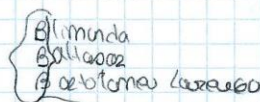 Blimunda
Baltasar
Bartolomeu Lourenço